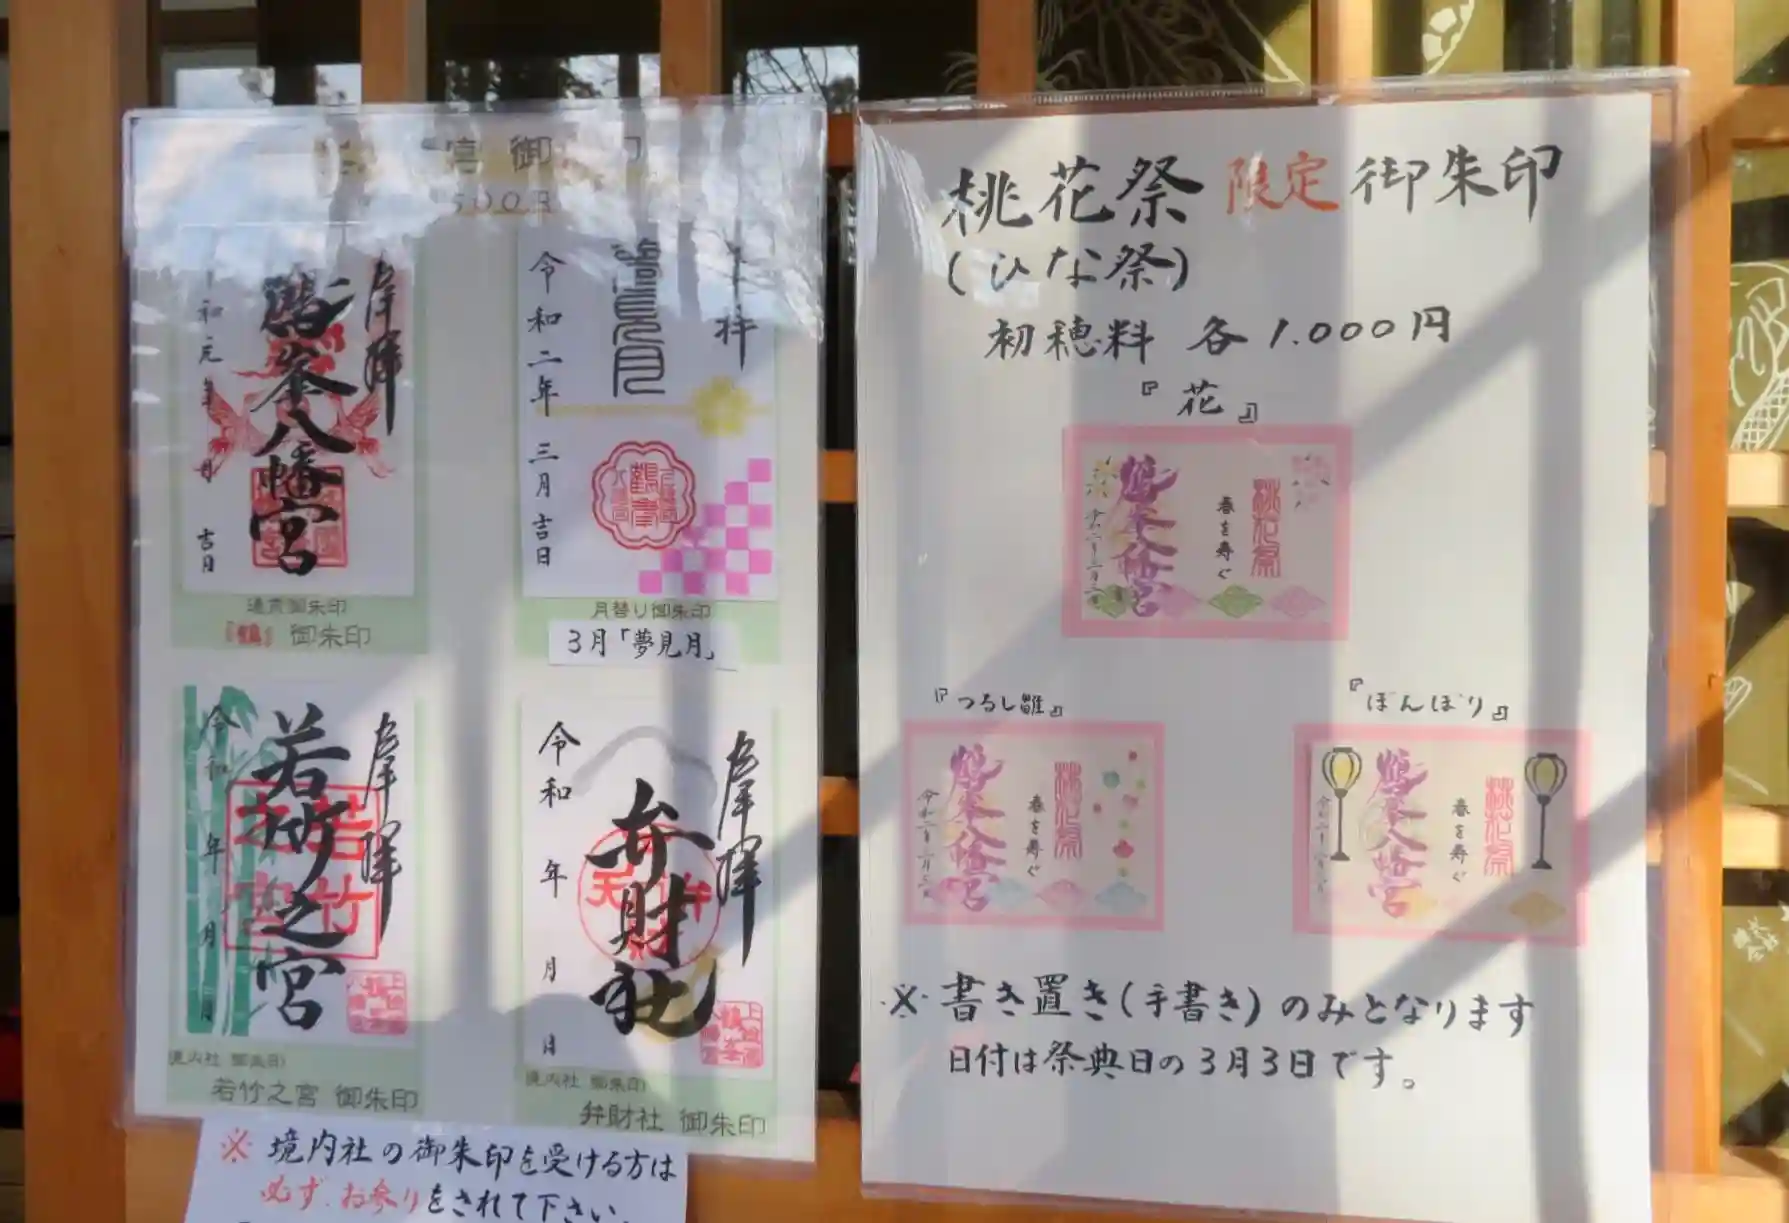 宮 御
500円
奉拝
鶴峯八幡宮
令和元年 月 吉日
通常御朱印
『鶴』 御朱印
奉拝
夢見月
令和二年 三月吉日
月替り御朱印
3月「夢見月」
奉拝
若竹之宮
令和 年 月 日
境内社 御朱印
若竹之宮 御朱印
奉拝
弁財社
令和 年 月 日
境内社 御朱印
弁財社 御朱印
※ 境内社の御朱印を受ける方は
必ず、お参りをされて下さい。
桃花祭 限定 御朱印
(ひな祭)
初穂料 各1.000円
『花』
桃花祭
春を寿ぐ
鶴峯八幡宮
『つるし雛』
桃花祭
春を寿ぐ
鶴峯八幡宮
『ぼんぼり』
桃花祭
春を寿ぐ
鶴峯八幡宮
※ 書き置き(手書き)のみとなります
日付は祭典日の3月3日です。